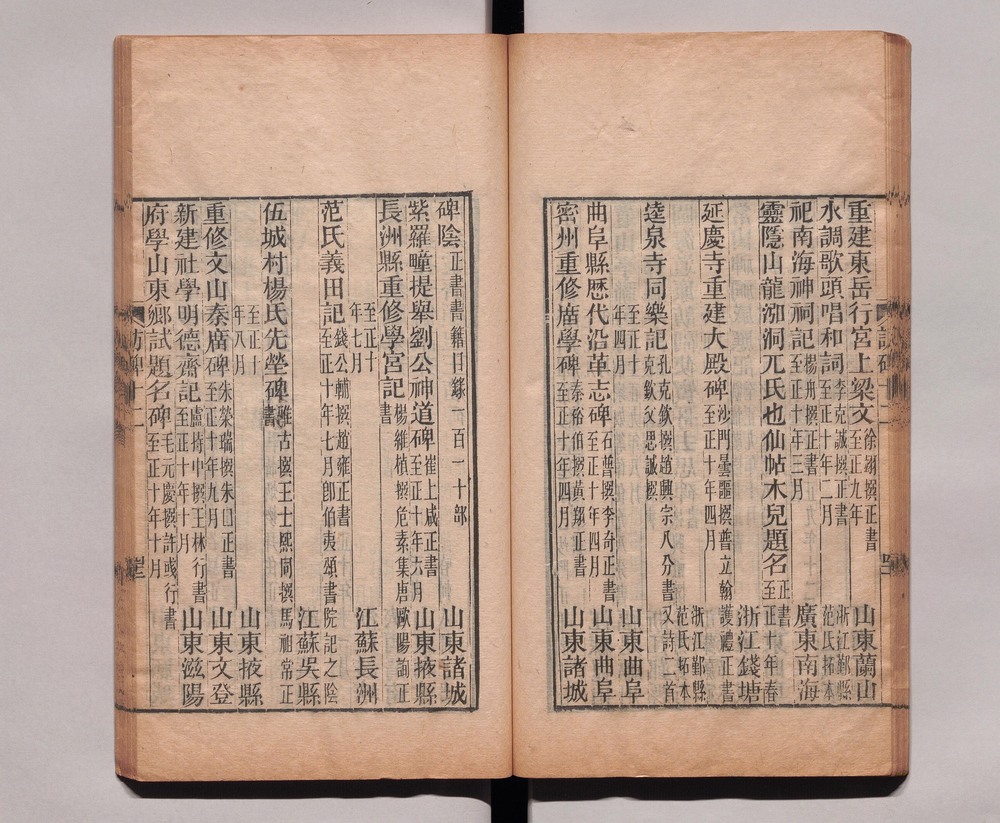 重建東岳行宮上梁文徐 撰正書至正九年山東蘭山
水調歌頭唱和詞李克誠撰正書至正十年二月浙江鄞縣范氏拓本
祀南海神祠記楊舟撰正書至正十年三月廣東南海
靈隱山龍泓洞兀氏也仙帖木兒題名正書至正十年春浙江錢塘
延慶寺重建大殿碑沙門曇噩撰普立翰護禮正書至正十年四月浙江鄞縣范氏拓本
逵泉寺同樂記孔克欽撰趙興宗八分書又詩二首克欽父思誠撰至正十年四月山東曲阜
曲阜縣歷代沿革志碑石普撰李奇正書至正十年四月山東曲阜
密州重修廣學碑秦裕伯撰黃翔正書至正十年四月山東諸城
訪碑十二
碑陰正書書籍目錄一百一十部山東諸城
紫羅疃提舉劉公神道碑崔上成正書至正十年六月山東掖縣
長洲縣重修學宮記楊維楨撰危素集唐歐陽詢正書至正十年七月江蘇長洲
范氏義田記錢公輔撰趙雍正書至正十年七月即伯夷頌書院記之陰江蘇吳縣
伍城村楊氏先塋碑雅古撰王士熙同撰馬祖常正書至正十年八月山東掖縣
重修文山秦廣碑朱榮瑞撰朱口正書至正十年九月山東文登
新建社學明德齋記盧持中撰王林行書至正十年十月山東滋陽
府學山東鄉試題名碑毛元慶撰許彧行書至正十年十一月
訪碑十二